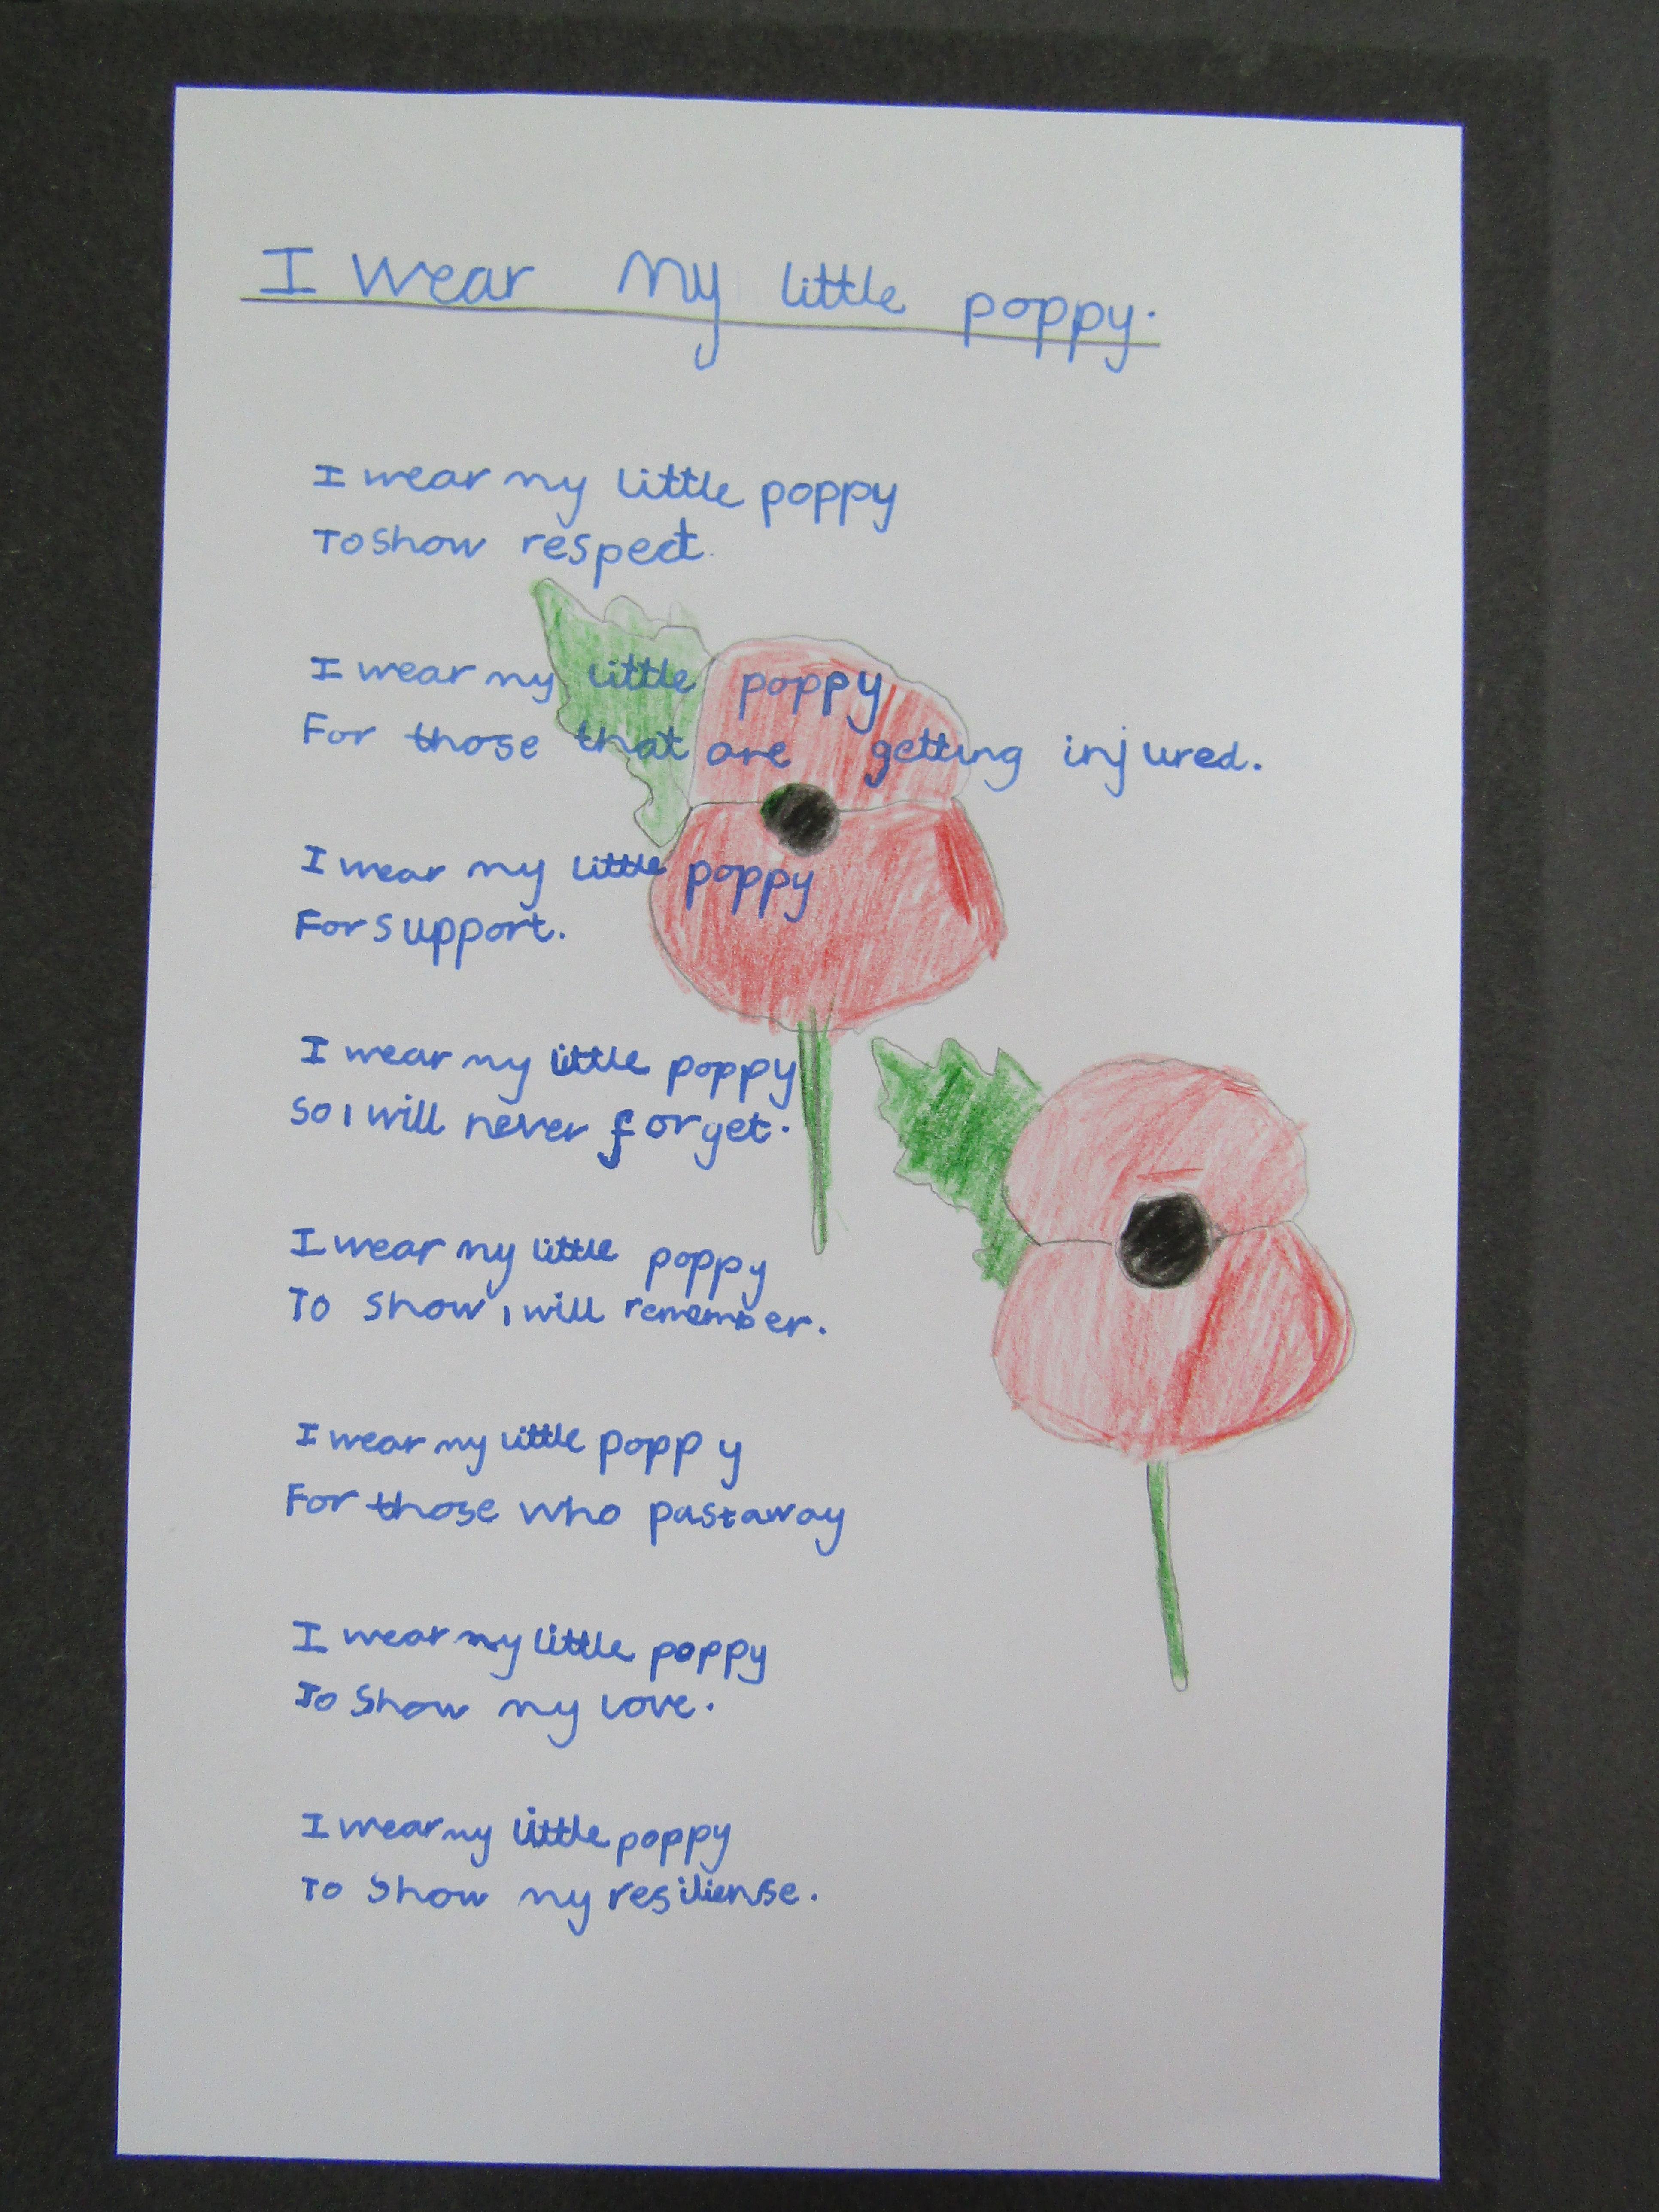 I wear my little poppy.
I wear my little poppy
To show respect.
I wear my little poppy
For those that are getting injured.
I wear my little poppy
For support.
I wear my little poppy
So I will never forget.
I wear my little poppy
To show I will remember.
I wear my little poppy
For those who past away
I wear my little poppy
To show my love.
I wear my little poppy
To show my resiliense.